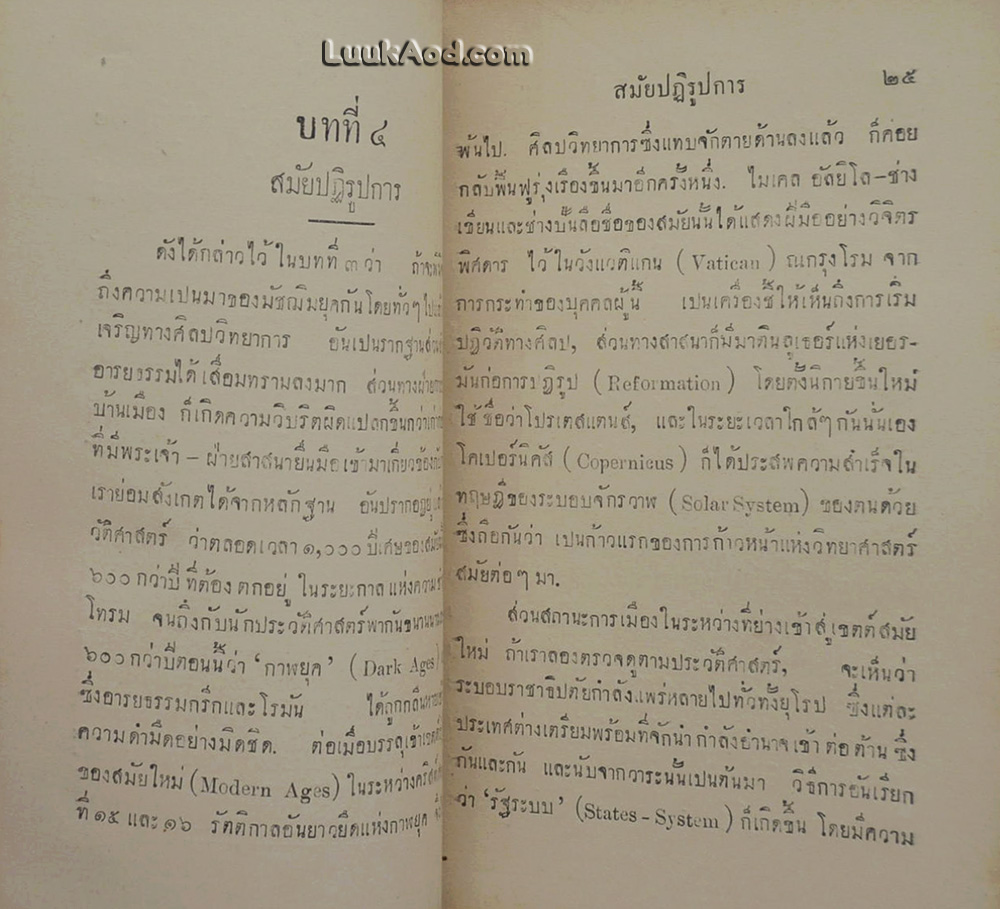 LuukAod.com
บทที่ ๔
สมัยปฏิรูปการ
ดังได้กล่าวไว้ ในบทที่ ๓ ว่า
ถึงความเปนมาของมัชฌิมยุคกันโดยทั่วๆ
เจริญทางศิลปวิทยาการ อันเปนรากฐาน
อารยธรรมได้เสื่อมทรามลงมาก ส่วนทาง
บ้านเมือง ก็เกิดความวิบริตผิดแปลกขึ้นกว่า
ที่มีพระเจ้า – ฝ่ายสาสนายื่นมือเข้ามาเกี่ยวข้อง
เราย่อมสังเกตได้จากหลักฐาน อันปรากฏอยู่
วัติศาสตร์ ว่าตลอดเวลา ๑,๐๐๐ ปีเศษของ
๖๐๐ กว่าปี ที่ต้อง ตกอยู่ ในระยะกาล แห่งความ
โทรม จนถึงกับนักประวัติศาสตร์พากันขนาน
๖๐๐ กว่าปีตอนนี้ว่า ‘กาฬยุค’ (Dark Ages)
ซึ่งอารยธรรมกรีกและโรมัน ได้ถูกกลืน
ความดำมืดอย่างมิดชิด. ต่อเมื่อบรรลุเข้า
ของสมัยใหม่ (Modern Ages) ในระหว่าง
ที่ ๑๕ และ ๑๖ รัตติกาลอันยาวยืดแห่งกาฬยุค
สมัยปฏิรูปการ ๒๕
พ้นไป. ศิลปวิทยาการซึ่งแทบจักตายด้านลงแล้ว ก็ค่อย
กลับฟื้นฟูรุ่งเรืองขึ้นมาอีกครั้งหนึ่ง. ไมเคล อัลยิโล–ช่าง
เขียนและช่างปั้นลือชื่อของสมัยนั้นได้แสดงฝีมืออย่างวิจิตร
พิศดาร ไว้ในวังแวติแกน (Vatican) ณกรุงโรม จาก
การกระทำของบุคคลผู้นี้ เปนเครื่องชี้ให้เห็นถึงการเริ่ม
ปฏิวัติทางศิลป, ส่วนทางสาสนาก็มีมาตินลูเธอร์แห่งเยอร–
มันก่อการปฏิรูป (Reformation) โดยตั้งนิกายขึ้นใหม่
ใช้ชื่อว่าโปรเตสแตนส์, และในระยะเวลาใกล้ๆ กันนั่นเอง
โคเปอร์นิคัส (Copernicus) ก็ได้ประสพความสำเร็จใน
ทฤษฎีของระบอบจักรวาฬ (Solar System) ของตนด้วย
ซึ่งถือกันว่า เปนก้าวแรกของการก้าวหน้าแห่งวิทยาศาสตร์
สมัยต่อๆ มา.
ส่วนสถานะการเมืองในระหว่างที่ย่างเข้าสู่เขตต์สมัย
ใหม่ ถ้าเราลองตรวจดูตามประวัติศาสตร์, จะเห็นว่า
ระบอบราชาธิปตัยกำลังแพร่หลายไปทั่วทั้งยุโรป ซึ่งแต่ละ
ประเทศต่างเตรียมพร้อมที่จักนำ กำลังอำนาจ เข้า ต่อ ต้าน ซึ่ง
กันและกัน และนับจากวาระนั้นเปนต้นมา วิธีการอันเรียก
ว่า ‘รัฐระบบ’ (States – System) ก็เกิดขึ้น โดยมีความ